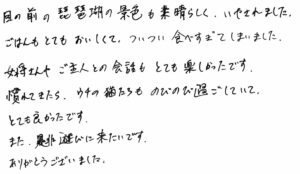 目の前の琵琶湖の景色も素晴らしく、いやされました。
ごはんもとてもおいしくて、ついつい食べすぎてしまいました。
女将さんやご主人との会話もとても楽しかったです。
慣れてきたら、ウチの猫たちものびのび過ごしていて、
とても良かったです。
また是非遊びに来たいです。
ありがとうございました。